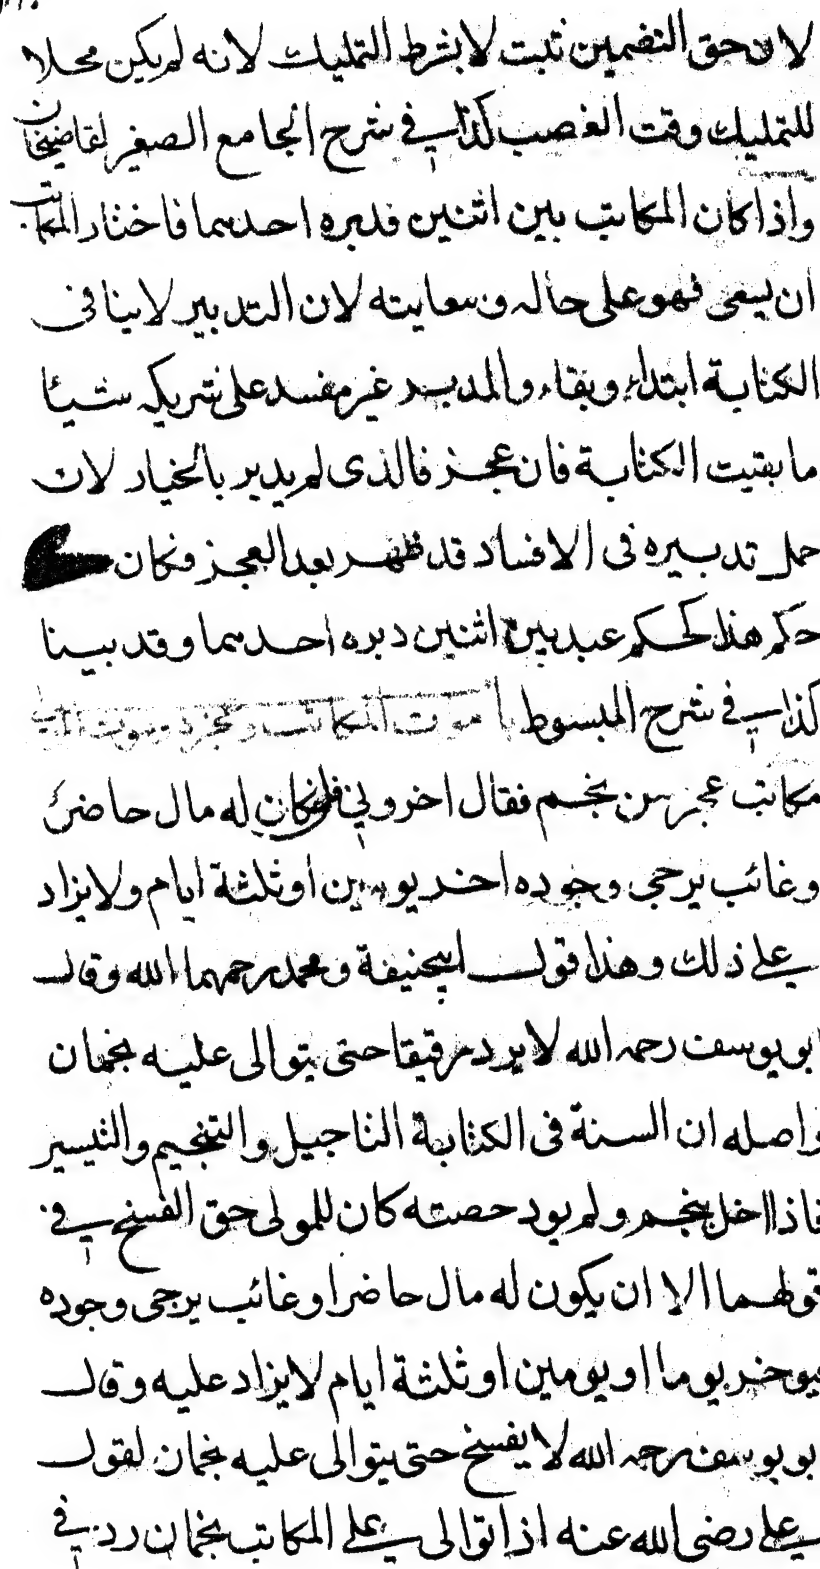 لان حق التضمين ثبت لا بشرط التمليك لانه لم يكن محلا
للتمليك وقت الغصب كذا في شرح الجامع الصغير لقاضيخان
واذا كان المكاتب بين اثنين فدبره احدهما فاختار المكاتب
ان يسعى فهو على حاله وسعايته لان التدبير لا ينافى
الكتابة ابتداء وبقاء والمدبر غير مفسد على شريكه شيئا
ما بقيت الكتابة فان عجز فالذى لم يدبر بالخيار لان
حمل تدبيره فى الافساد قد ظهر بعد العجز وكان
حكم هذا كحكم عبد بين اثنين دبره احدهما وقد بينا
كذا في شرح المبسوط موت المكاتب وعجزه وموت المولى
مكاتب عجز عن نجم فقال اخروني فان كان له مال حاضر
وغائب يرجى وجوده اخر يومين او ثلثة ايام ولا يزاد
على ذلك وهذا قول ابيحنيفة ومحمد رحمهما الله وقال
ابو يوسف رحمه الله لا يرد رقيقا حتى يتوالى عليه نجمان
واصله ان السنة فى الكتابة التاجيل والتنجيم والتيسير
فاذا اخل بنجم ولم يود حصته كان للمولى حق الفسخ في
قولهما الا ان يكون له مال حاضر او غائب يرجى وجوده
فيوخر يوما او يومين او ثلثة ايام لا يزاد عليه وقال
ابو يوسف رحمه الله لا يفسخ حتى يتوالى عليه نجمان لقول
علي رضى الله عنه اذا توالى على المكاتب نجمان رد في